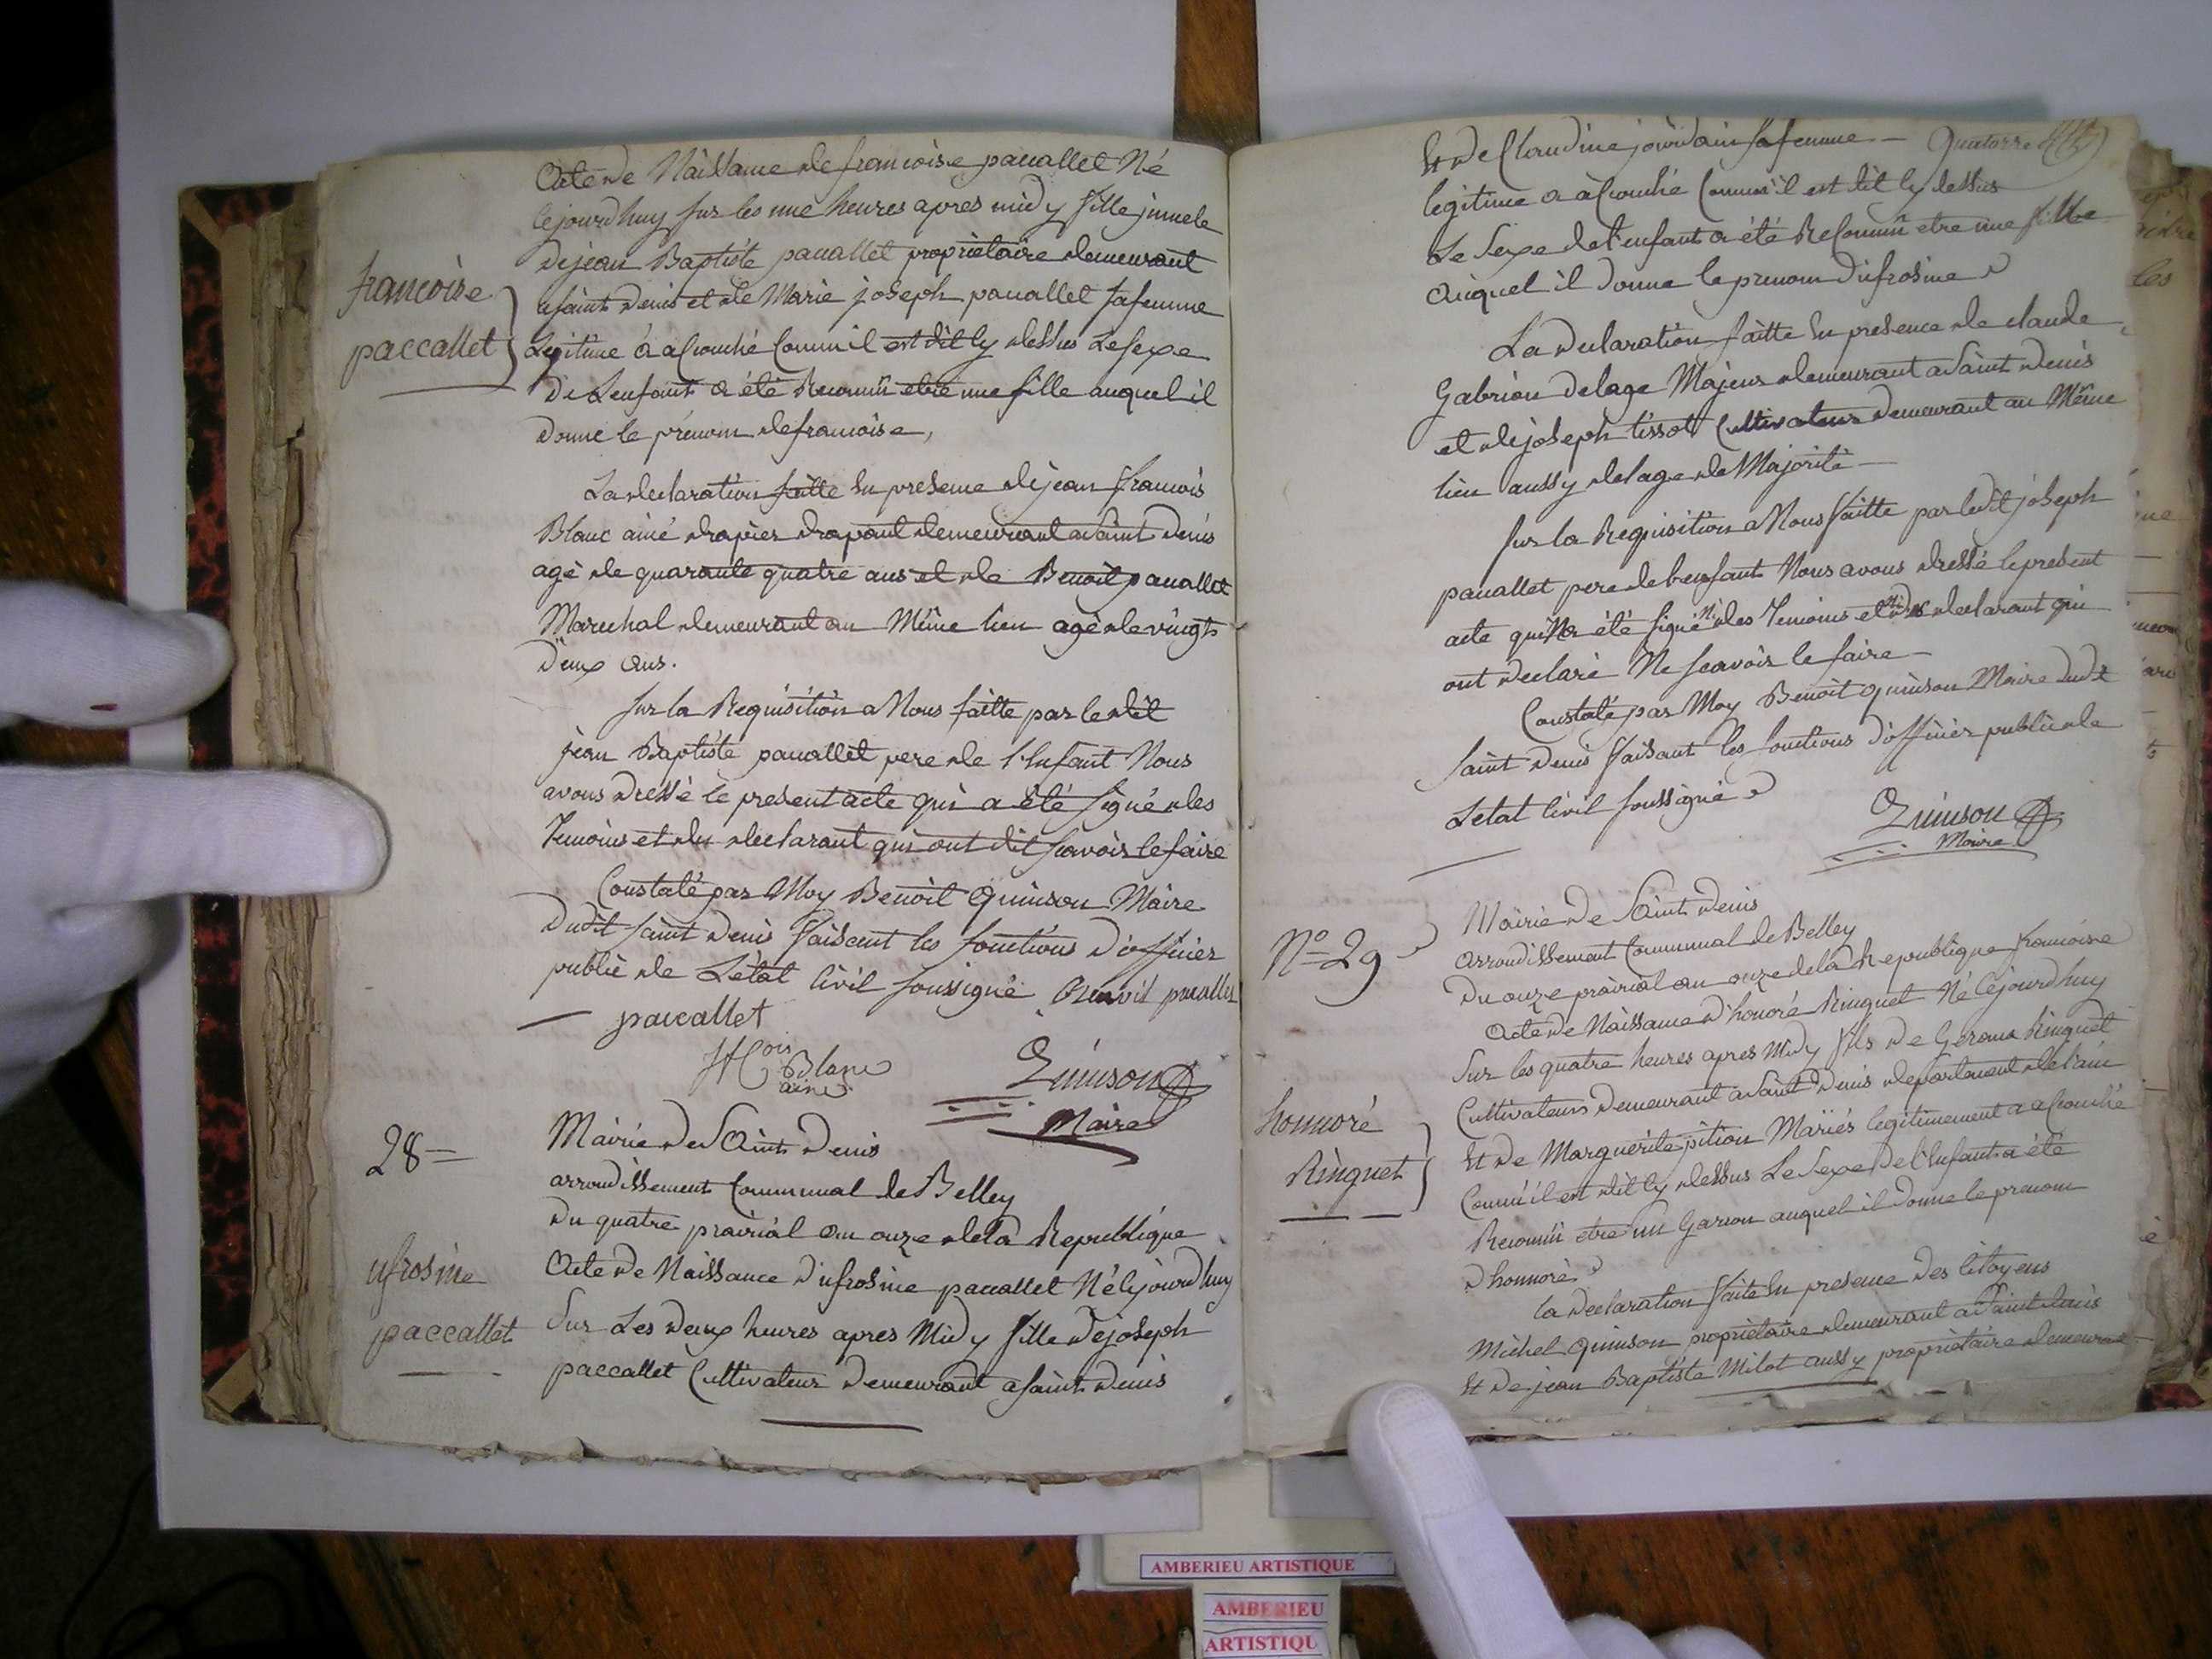 Acte de Naissance de francoise paccallet Né
cejourdhuy sur les une heures apres midy fille jumele
dejean Baptiste paccallet propriétaire demeurant
asaint denis et de Marie joseph paccallet safemme
Legitime à acouché Comm il est dit cy dessus Le sexe
De Lenfant a été Reconnü etre une fille auquel il
donne le prénom defrancoise,
francoise
paccallet
La declaration faitte En presence dejean francois
Blanc ainé drapier drapant demeurant asaint denis
agé de quarante quatre ans et de Benoit paccallet
Marechal demeurant au Même lieu agé de vingt
deux ans.
sur la Requisition a Nous faitte par le dit
jean Baptiste paccallet pere de l'Enfant Nous
avons dressé le present acte qui a été signé des
Temoins et du declarant qui ont dit scavoir le faire
Constaté par Moy Benoit Quinson Maire
Dudit saint denis faisant les fonctions d'officier
public de Létat Civil soussigné Benoit paccallet
paccallet
Blanc
ainé
Quinson
Maire
28
Mairie de Saint Denis
arrondissement Communal de Belley
Du quatre prairial an onze dela Republique
ufrosine
paccallet
Acte de Naissance d'ufrosine paccallet Né cejourdhuy
Sur Les Deux heures apres Midy fille dejoseph
paccallet Cultivateur Demeurant asaint denis
Et de Claudine jourdain safemme — Quatorze
legitime a àcouché Comme il est dit cy dessus
Le Sexe del'enfant a été Reconnü etre une fille
Auquel il donne le prenom d'ufrosine
La declaration faitte En presence de claude
Gabrion delage Majeur demeurant asaint denis
et dejoseph tissot Cultivateur demeurant au Même
lieu aussy delage de Majorité
sur la Requisition a Nous faitte par ledit joseph
paccallet pere de lenfant Nous avons dressé lepresent
acte qui Na été signé Ni des Temoins et Ni du declarant qui
ont declaré Ne scavoir le faire
Constaté par Moy Benoit quinson Maire dudt
saint denis faisant les fonctions d'officier public de
Létat Civil soussigné
Quinson
Maire
No 29
Mairie de Saint denis
arrondissement Communal de Belley
Du onze prairial an onze dela Republique francoise
Acte de Naissance d'honoré Ringuet Né Cejourdhuy
Sur les quatre heures apres Midy fils de Gérome Ringuet
Cultivateur Demeurant asaint Denis departement del'ain
Et de Marguerite pition Mariés legitimement a acouché
Comm'il est dit cy dessus Le Sexe de l'Enfant a été
Reconnü etre un Garcon auquel il donne le prenom
d'honnoré
honnoré
Ringuet
la declaration faite En presence des Citoyens
Michel Quinson propriétaire demeurant a Saint denis
Et de jean Baptiste Milot aussy propriétaire demeurant
AMBERIEU ARTISTIQUE
AMBERIEU
ARTISTIQU